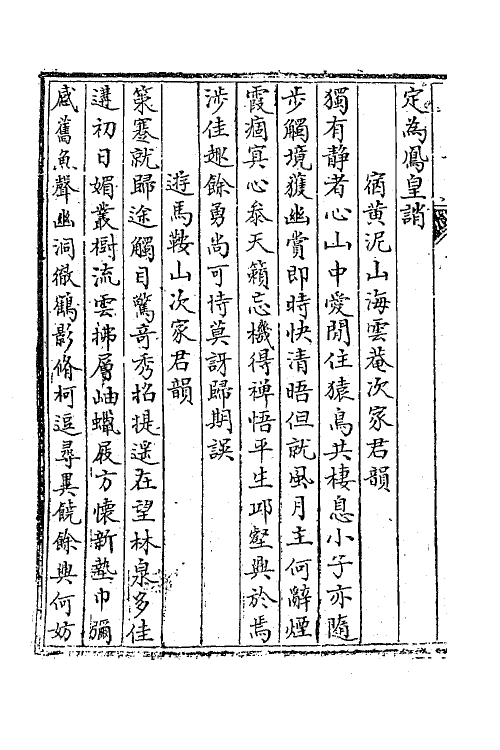 定為鳳皇誚
宿黄泥山海雲菴次家君韻
獨有静者心山中愛閒住猿鳥共棲息小子亦隨
步觸境獲幽賞即時快清晤但就風月主何辭煙
霞痼冥心叅天籟忘機得禅悟平生邱壑興於焉
涉佳趣餘勇尚可恃莫訝歸期誤
遊馬鞍山次家君韻
策蹇就歸途觸目驚奇秀招提遥在望林泉多佳
遘初日媚叢樹流雲拂層岫蠟屐方懷新墊巾彌
感舊魚聲幽洞徹鶴影脩柯逗尋異饒餘興何妨